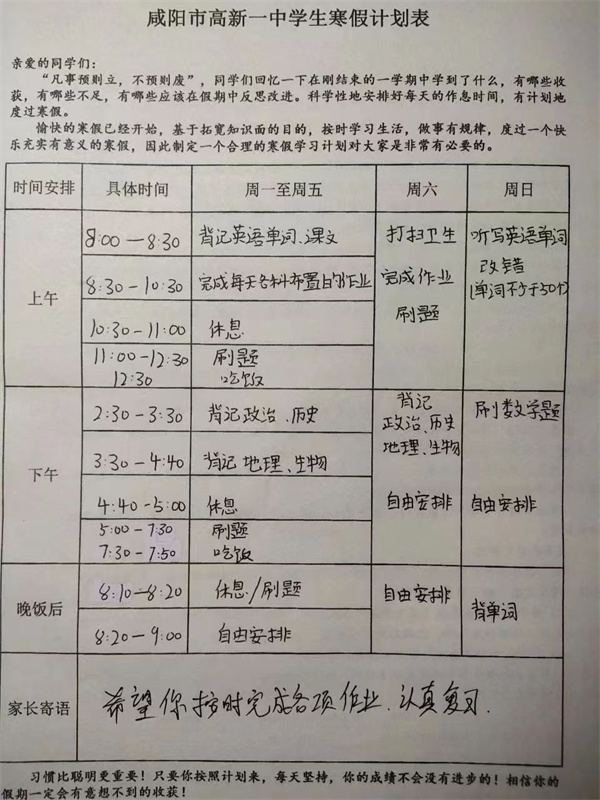 咸阳市高新一中学生寒假计划表
亲爱的同学们：
“凡事预则立，不预则废”，同学们回忆一下在刚结束的一学期中学到了什么，有哪些收
获，有哪些不足，有哪些应该在假期中反思改进。科学性地安排好每天的作息时间，有计划地
度过寒假。
愉快的寒假已经开始，基于拓宽知识面的目的，按时学习生活，做事有规律，度过一个快
乐充实有意义的寒假，因此制定一个合理的寒假学习计划对大家是非常有必要的。
时间安排 具体时间 周一至周五 周六 周日
上午
8:00—8:30 背记英语单词、课文
8:30-10:30 完成每天各科布置的作业
10:30-11:00 休息
11:00-12:30 刷题
12:30 吃饭
打扫卫生
完成作业
刷题
听写英语单词
改错
(单词不少于50个)
下午
2:30-3:30 背记政治、历史
3:30-4:40 背记地理、生物
4:40-5:00 休息
5:00-7:30 刷题
7:30-7:50 吃饭
背记
政治、历史
地理、生物
自由安排
刷数学题
自由安排
晚饭后
8:10-8:20 休息/刷题
8:20-9:00 自由安排
自由安排
背单词
家长寄语 希望你按时完成各项作业、认真复习.
习惯比聪明更重要！只要你按照计划来，每天坚持，你的成绩不会没有进步的！相信你的
假期一定会有意想不到的收获！